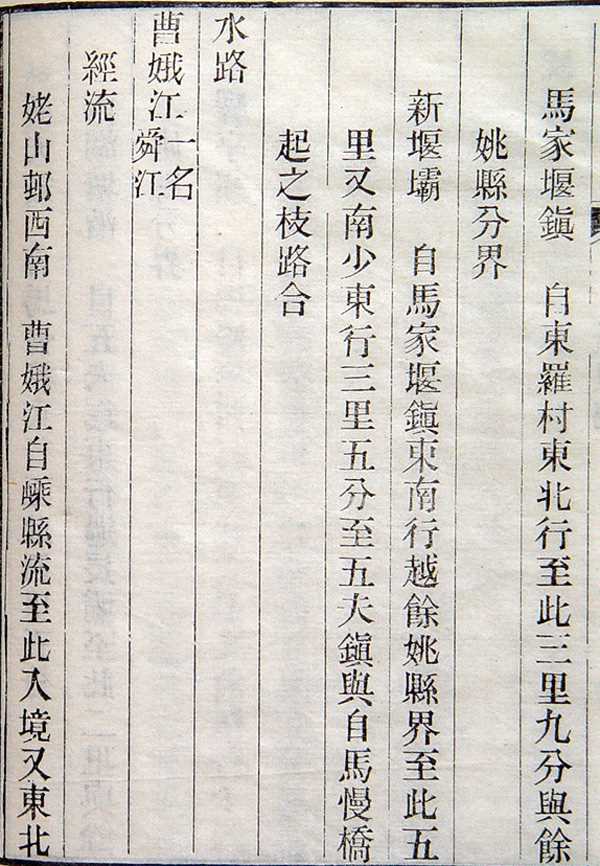 馬家堰鎭　自東羅村東北行至此三里九分與餘
姚縣分界
新堰壩　自馬家堰鎭東南行越餘姚縣界至此五
里又南少東行三里五分至五夫鎭與自馬慢橋
起之枝路合
水路
曹娥江一名
舜江
經流
姥山邨西南　曹娥江自嵊縣流至此入境又東北